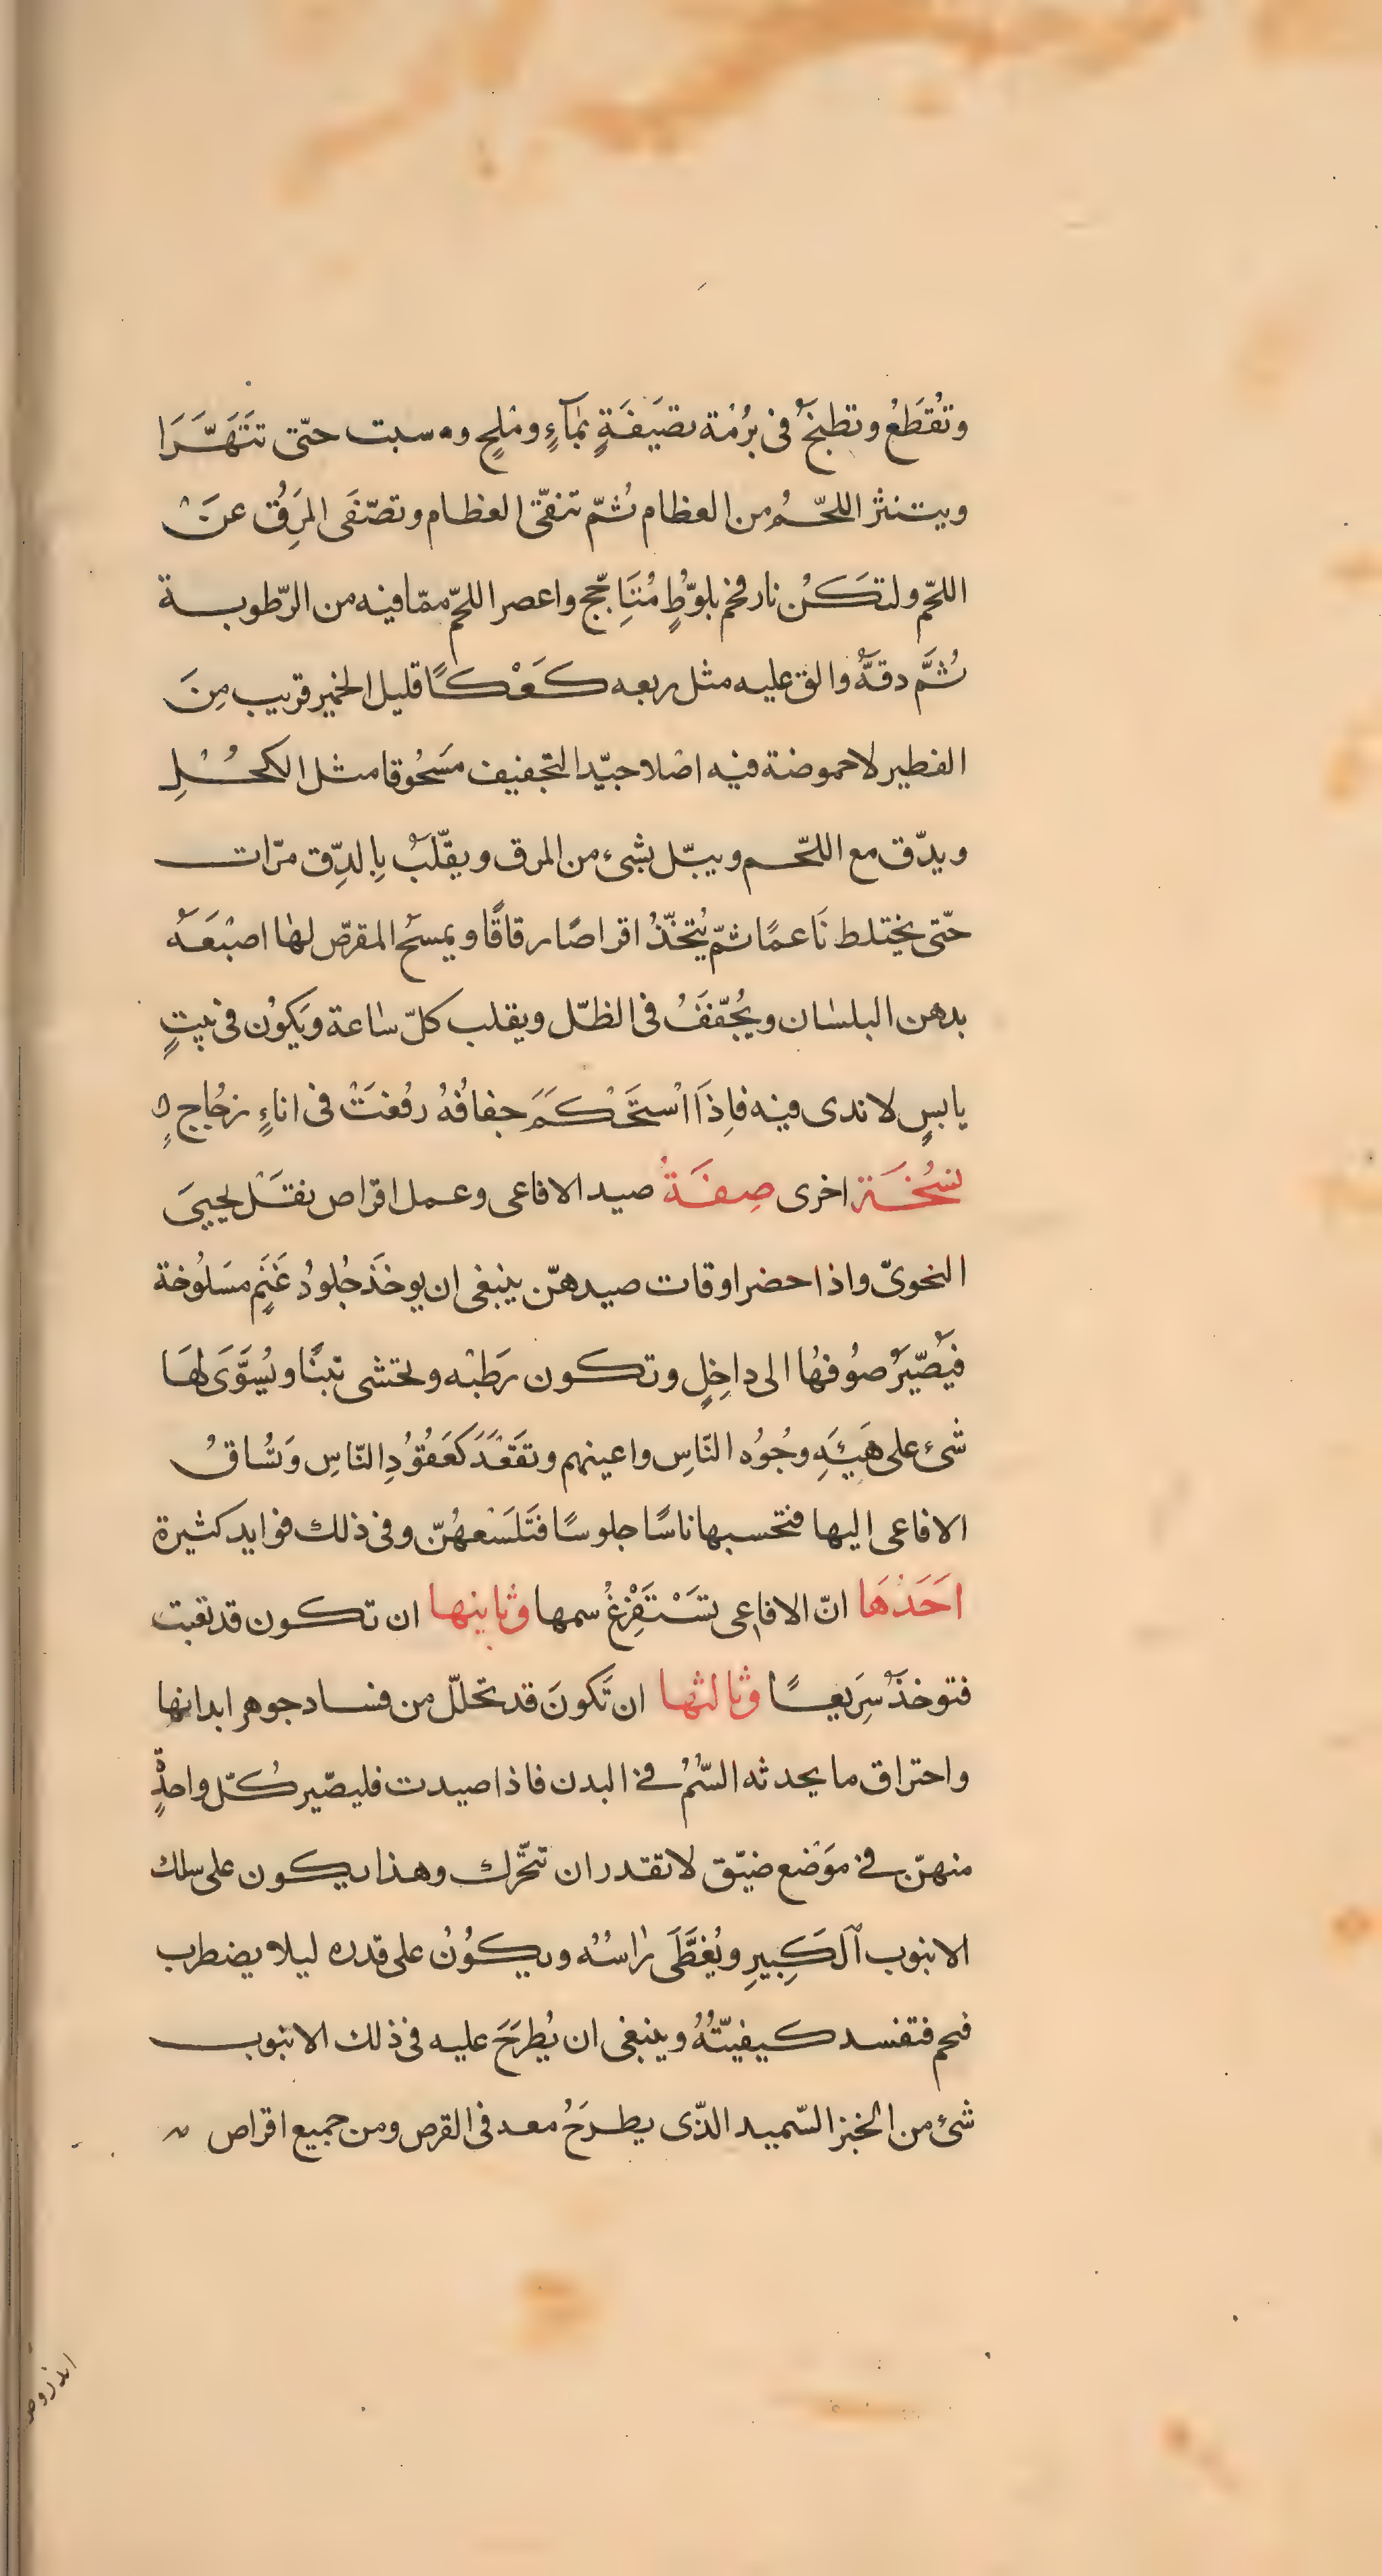 وتُقْطَعُ وتطبخَهُ فى بُرْمَة نصَيفَةٍ بمَآءٍ ومْلحٍ و سبت حتّى تتَهَرَّا
ويتنثر اللحّمُ من العظام ثُمّ تنقّى العظام وتصّفَى المَرَقُ عنَ
اللحّم ولتكَنْ نار فخم بلوّطٍ مُتَاجّج واعصر اللحّم ممّا فيه من الرّطوبة
ثُمَّ دقهُّ والق عليه مثل ربعه كَعْكًا قليل الخمير قريب مِنَ
الفطير لا حموضة فيه اصْلا جيّد التجفيف مسَحُوقا مثل الكُحْلِ
ويدّق مع اللحّم ويبّل بشىء من المرق ويقلّبْهُ بِالدِّق مرّات
حتّى يختلط نَاعمًا ثمّ يُتخّذُ اقراصًا رقاقًا ويمسحَ المقرّص لها اصبْعَهُ
بدهن البلسان ويُجُفّفَُ فى الظّل ويقلب كلّ ساعة ويَكوُن فى بيتٍ
يابسٍ لا ندى فيه فاِذَا اسْتحَْكَمَ جفافُهُ رفُعتَْ فى اناءٍ زجُاجٍ ه
نسُخَة اخرى صِفَةُ صيد الافاعى وعمل اقراص نقَلْ لحييَ
النحوىّ واذا حضر اوقات صيدهنّ ينبغى ان يوخَذ جُلودُ غَنَمٍ مسَلوُخة
فيُصّيَر صوُفهُا الى داخِلٍ وتكون رَطبْه وتحتشى تبنًا ويُسَوَّىَ لهَا
شىء على هَيئَهِ وجُوُه النّاسِ واعينهم وتقَعْدَ كَعَقُوُدِ النّاسِ وَتسُاقُ
الافاعى اليها فتحسبها ناسًا جلوسًا فتَلسَعهُنّ وفى ذلك فوايد كثيرة
احَدهَا انّ الافاعى تسَتَفْرِغُ سمها وثانيها ان تكون قد تعبت
فتوخذَهُ سِرَيعًا وثالثها ان تَكونَ قد تحللّ من فساد جوهر ابدانها
واحتراق ما يحدثه السّمُ فى البدن فاذا صيدت فليصّير كُلّ واحدةٍ
منهنّ فى موَضْع ضيّق لا تقدر ان تحّرك وهذا يكون على سلك
الانبوب اَلكَبِيرِ ويُغطَّىَ راسُهُ ويكوُنُ على قدره ليلا يضطرب
فحم فتفسد كيفيّتُهُ وينبغى ان يُطرَحَ عليه فى ذلك الانبوب
شىء من الخبز السّميد الذّى يطرَحُ معه فى القرص ومن جميع اقراص